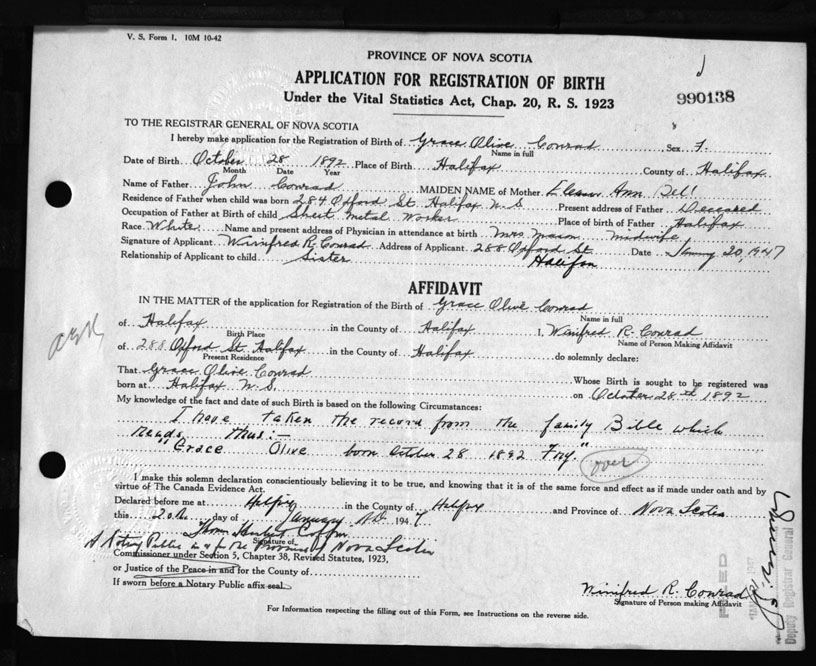 V. S. Form 1. 10M 10-42
PROVINCE OF NOVA SCOTIA
APPLICATION FOR REGISTRATION OF BIRTH
Under the Vital Statistics Act, Chap. 20, R. S. 1923
990138
TO THE REGISTRAR GENERAL OF NOVA SCOTIA
I hereby make application for the Registration of Birth of Grace Olive Conrad Sex F.
Name in full
Date of Birth October 28 1892 Place of Birth Halifax County of Halifax
Month Date Year
Name of Father John Conrad MAIDEN NAME of Mother Ann
Residence of Father when child was born 284 Oxford St. Halifax N S Present address of Father Deceased
Occupation of Father at Birth of child Sheet Metal Worker Place of birth of Father Halifax
Race White Name and present address of Physician in attendance at birth Mrs Mason midwife
Signature of Applicant Winifred R. Conrad Address of Applicant 288 Oxford St Date January 20, 1947
Relationship of Applicant to child Sister Halifax
AFFIDAVIT
IN THE MATTER of the application for Registration of the Birth of Grace Olive Conrad
Name in full
of Halifax in the County of Halifax I, Winifred R. Conrad
Birth Place Name of Person Making Affidavit
of 288 Oxford St. Halifax in the County of Halifax do solemnly declare:
Present Residence
That Grace Olive Conrad Whose Birth is sought to be registered was
born at Halifax N. S. on October 28th 1892
My knowledge of the fact and date of such Birth is based on the following Circumstances:
I have taken the record from the family Bible which
reads thus:—
"Grace Olive born October 28 1892 Fry."
over
I make this solemn declaration conscientiously believing it to be true, and knowing that it is of the same force and effect as if made under oath and by
virtue of The Canada Evidence Act.
Declared before me at Halifax in the County of Halifax and Province of Nova Scotia
this 20th day of January A.D. 1947
Signature of
A Notary Public in & for the Province of Nova Scotia
Commissioner under Section 5, Chapter 38, Revised Statutes, 1923,
or Justice of the Peace in and for the County of
If sworn before a Notary Public affix seal
Winifred R. Conrad
Signature of Person making Affidavit
For Information respecting the filling out of this Form, see Instructions on the reverse side.
Deputy Registrar General